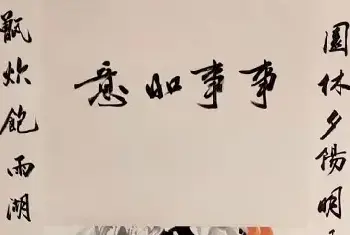 園夕陽明
事事如意
甑炊飽雨湖